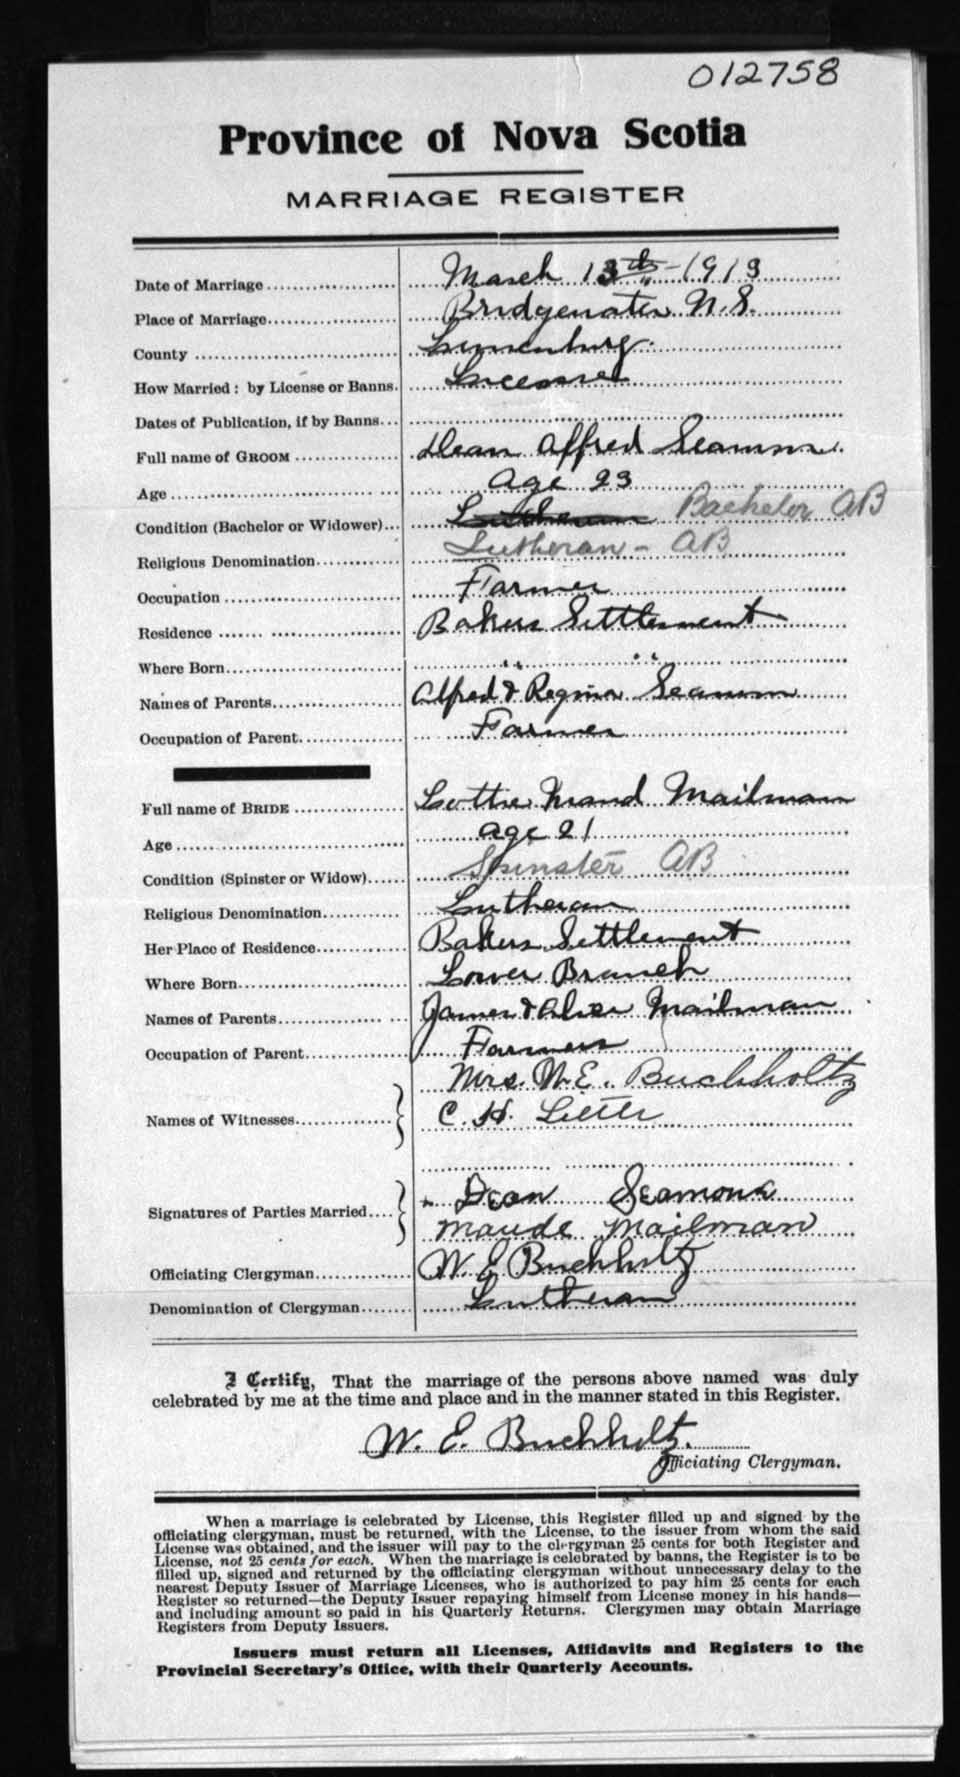 012758
Province of Nova Scotia
MARRIAGE REGISTER
Date of Marriage March 13th - 1913
Place of Marriage Bridgewater N.S.
County Lunenburg
How Married: by License or Banns. License
Dates of Publication, if by Banns
Full name of GROOM Dean Alfred Seamon
Age Age 23
Condition (Bachelor or Widower) Lutheran Bachelor AB
Religious Denomination Lutheran - AB
Occupation Farmer
Residence Bakers Settlement
Where Born " "
Names of Parents Alfred & Regina Seamon
Occupation of Parent Farmer
Full name of BRIDE Lottie Maud Mailman
Age age 21
Condition (Spinster or Widow) Spinster AB
Religious Denomination Lutheran
Her Place of Residence Bakers Settlement
Where Born Lower Branch
Names of Parents James & Mailman
Occupation of Parent Farmer
Mrs. W. E. Buchholtz
Names of Witnesses C. H.
Dean Seamons
Signatures of Parties Married
Maude Mailman
Officiating Clergyman W. E Buchholtz
Denomination of Clergyman Lutheran
I Certify, That the marriage of the persons above named was duly
celebrated by me at the time and place and in the manner stated in this Register.
W. E. Buchholtz.
Officiating Clergyman.
When a marriage is celebrated by License, this Register filled up and signed by the
officiating clergyman, must be returned, with the License, to the issuer from whom the said
License was obtained, and the issuer will pay to the clergyman 25 cents for both Register and
License, not 25 cents for each. When the marriage is celebrated by banns, the Register is to be
filled up, signed and returned by the officiating clergyman without unnecessary delay to the
nearest Deputy Issuer of Marriage Licenses, who is authorized to pay him 25 cents for each
Register so returned—the Deputy Issuer repaying himself from License money in his hands—
and including amount so paid in his Quarterly Returns. Clergymen may obtain Marriage
Registers from Deputy Issuers.
Issuers must return all Licenses, Affidavits and Registers to the
Provincial Secretary's Office, with their Quarterly Accounts.